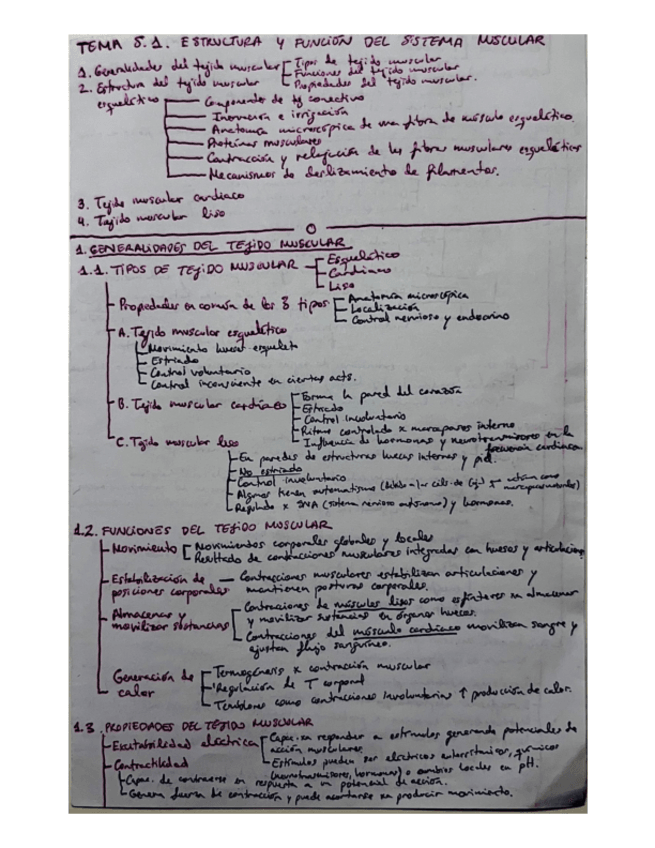 TEMA 5.1. ESTRUCTURA Y FUNCIÓN DEL SISTEMA MUSCULAR
1. Generalidades del tejido muscular
Tipos de tejido muscular
Funciones del tejido muscular
Propiedades del tejido muscular.
2. Estructura del tejido muscular
esquelético
Componentes de tej conectivo
Inervación e irrigación
Anatomía microscópica de una fibra de músculo esquelético.
Proteínas musculares
Contracción y relajación de las fibras musculares esqueléticas
Mecanismos de deslizamiento de filamentos.
3. Tejido muscular cardiaco
4. Tejido muscular liso
1. GENERALIDADES DEL TEJIDO MUSCULAR
1.1. TIPOS DE TEJIDO MUSCULAR
Esquelético
Cardiaco
Liso
Propiedades en común de los 3 tipos
Anatomía microscópica
Localización
Control nervioso y endocrino
A. Tejido muscular esquelético
Movimiento huesos esqueleto
Estriado
Control voluntario
Control inconsciente en ciertas acts.
B. Tejido muscular cardiaco
Forma la pared del corazón
Estriado
Control involuntario
Ritmo controlado x marcapasos interno
Influencia de hormonas y neurotransmisores en la
frecuencia cardiaca
C. Tejido muscular liso
En paredes de estructuras huecas internas y piel.
No estriado
Control involuntario
Algunos tienen automatismo (debido a las céls de Cajal actúan como
marcapasos naturales)
Regulado x SNA (sistema nervioso autónomo) y hormonas.
1.2. FUNCIONES DEL TEJIDO MUSCULAR
Movimiento
Movimientos corporales globales y locales
Resultado de contracciones musculares integradas con huesos y articulaciones
Estabilización de
posiciones corporales
Contracciones musculares estabilizan articulaciones y
mantienen posturas corporales.
Almacenar y
movilizar sustancias
Contracciones de músculos lisos como esfínteres xa almacenar
y movilizar sustancias en órganos huecos.
Contracciones del músculo cardiaco movilizan sangre y
ajustan flujo sanguíneo.
Generación de
calor
Termogénesis x contracción muscular
Regulación de T corporal
Temblores como contracciones involuntarias ↑ producción de calor.
1.3. PROPIEDADES DEL TEJIDO MUSCULAR
Excitabilidad eléctrica
Capac. xa responder a estímulos generando potenciales de
acción musculares.
Estímulos pueden ser eléctricos autorrítmicos, químicos
(neurotransmisores, hormonas) o cambios locales en pH.
Contractilidad
Capac. de contraerse en respuesta a un potencial de acción.
Genera fuerza de contracción y puede acortarse xa producir movimiento.